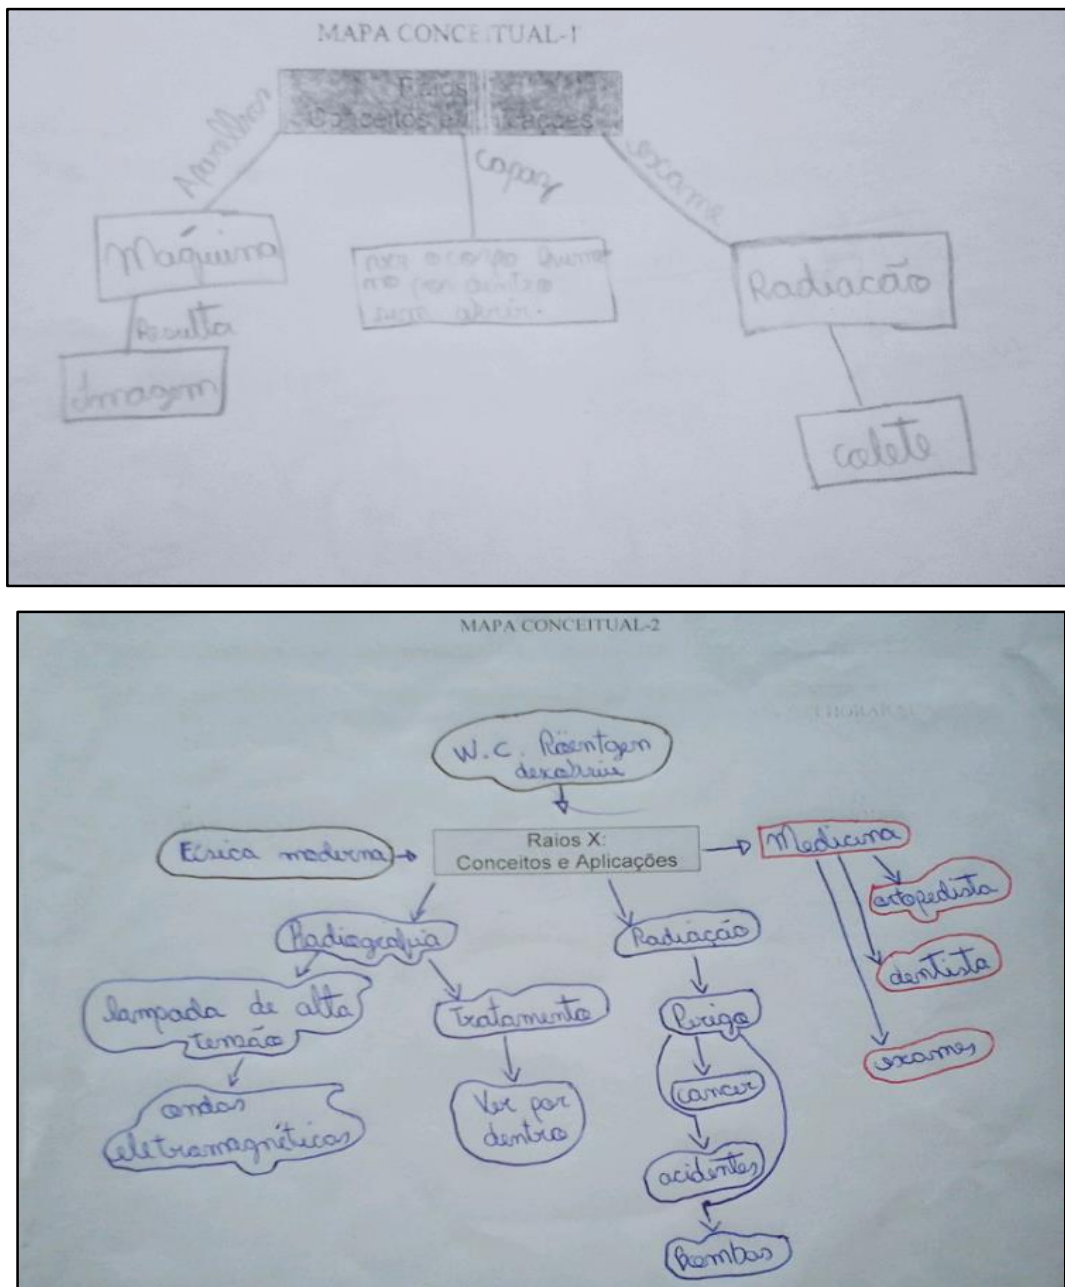 MAPA CONCEITUAL-1
Raios
Conceitos e
Aparelhos
capaz
exame
Máquina
ver o corpo huma
no por dentro
sem abrir.
Radiacão
Resulta
Imagem
colete
MAPA CONCEITUAL-2
W.C. Röentgen
descobriu
Física moderna
Raios X:
Conceitos e Aplicações
Medicina
ortopedista
Radiografia
Radiação
dentista
lampada de alta
tensão
Tratamento
Perigo
exames
cancer
ondas
eletromagnéticas
Ver por
dentro
acidentes
Bombas